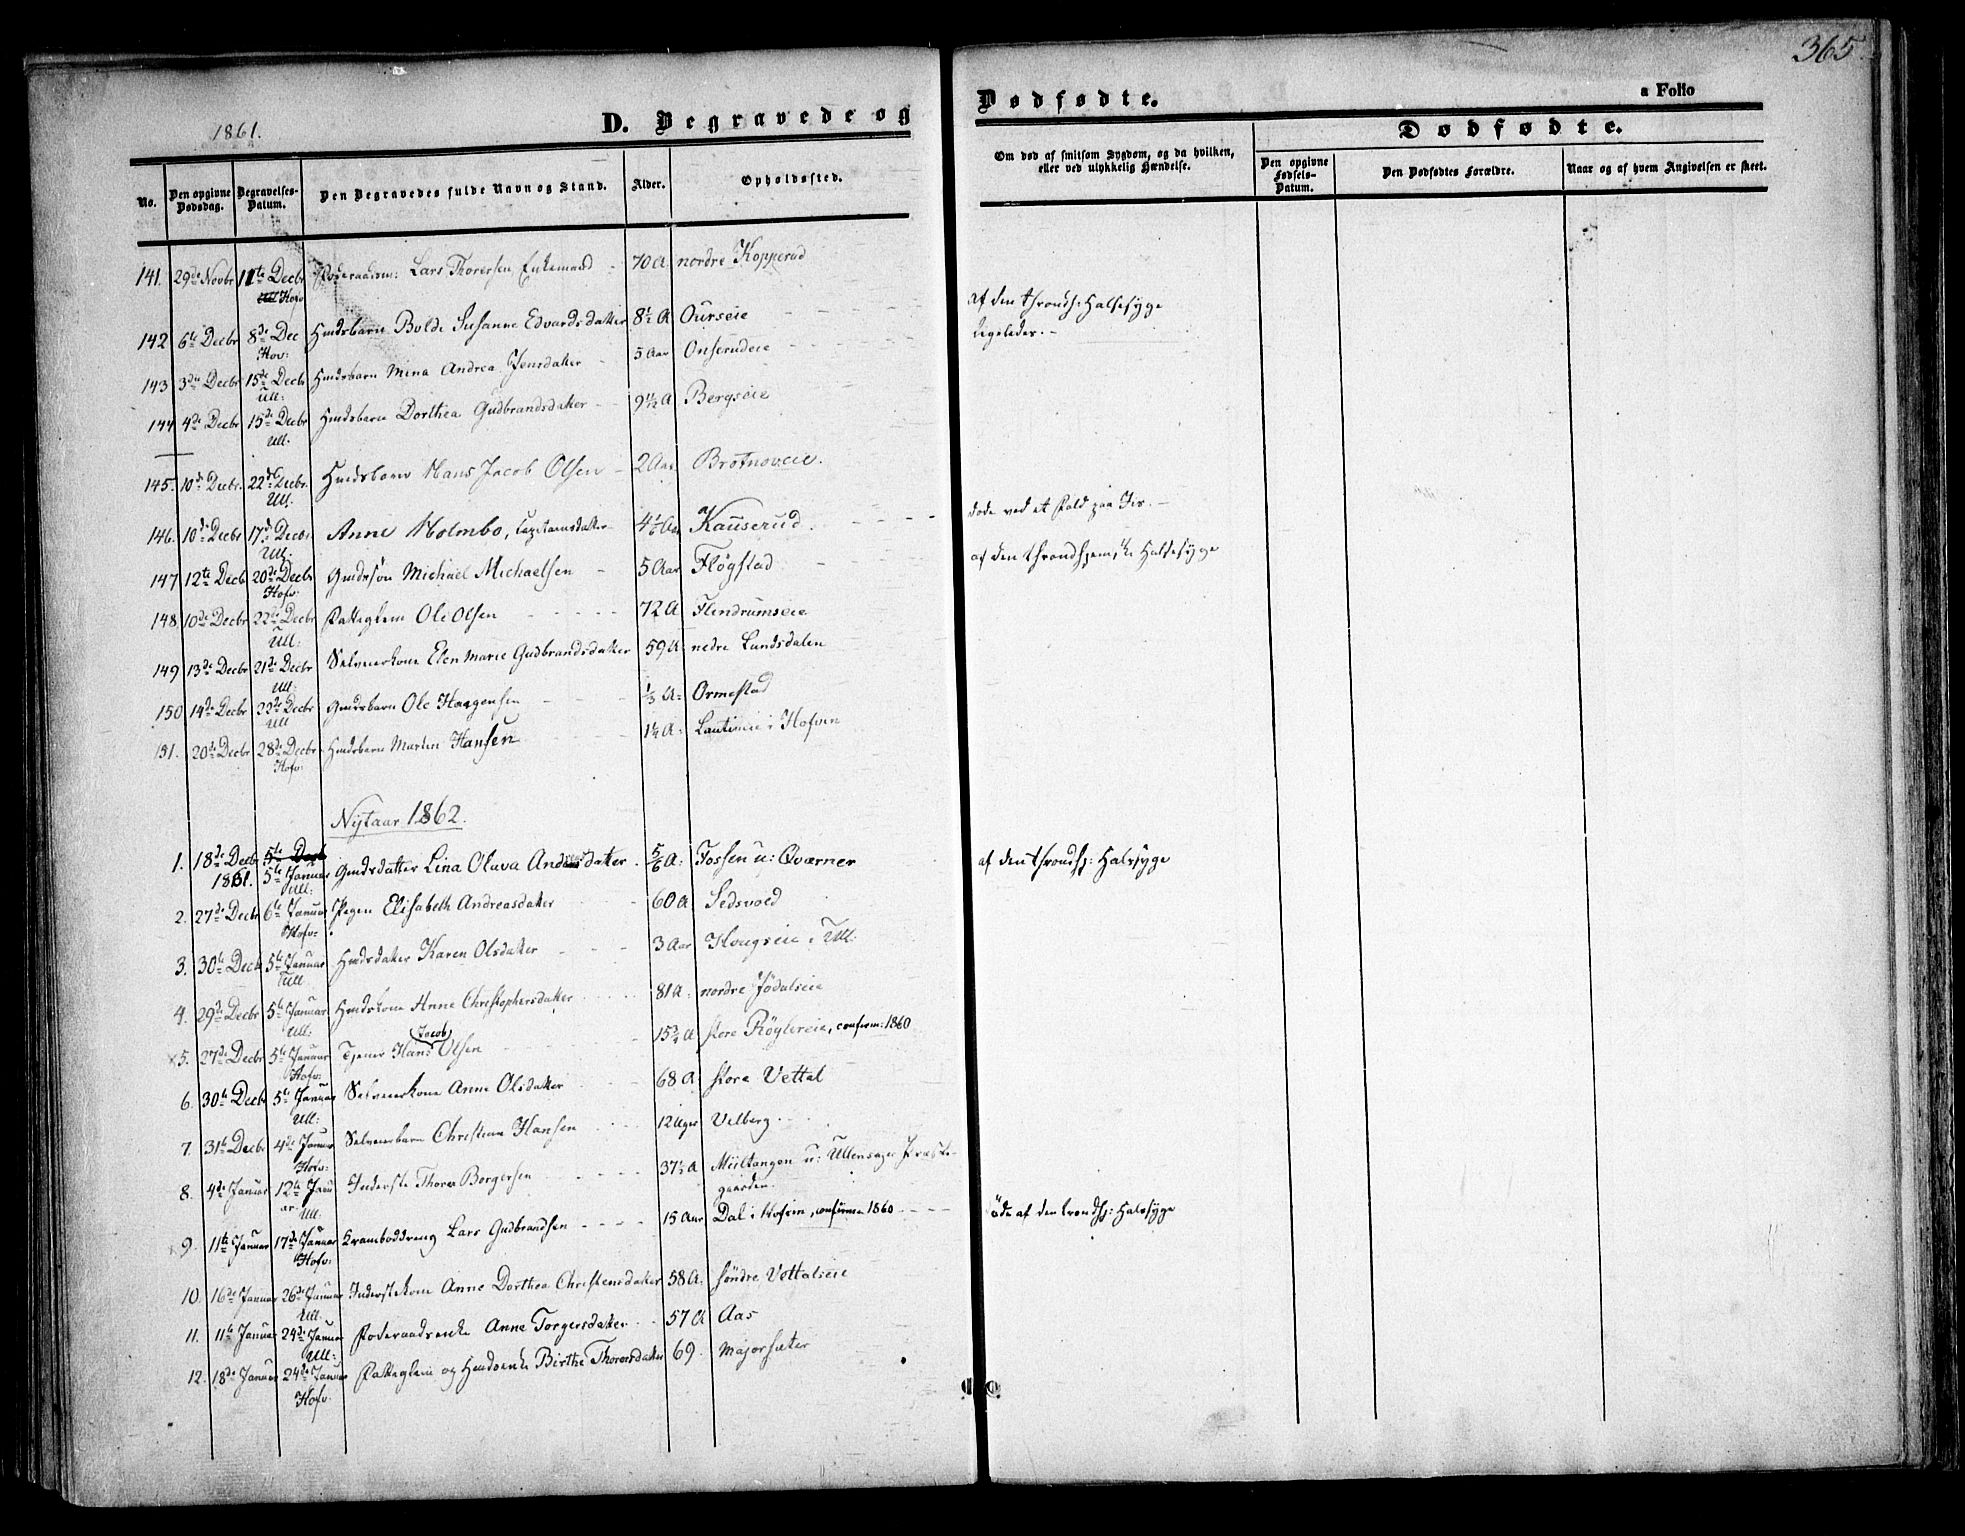 365.
1861.
D. Begravede og Dødfødte.
a Folio
No.
Den opgivne Dødsdag.
Begravelses-Datum.
Den Begravedes fulde Navn og Stand.
Alder.
Opholdssted.
Om død af smitsom Sygdom, og da hvilken, eller ved ulykkelig Hændelse.
Dødfødte.
Den opgivne Fødsels-Datum.
Den Dødfødtes Forældre.
Naar og af hvem Angivelsen er skeet.
141. 29de Novbr 11te Decbr Hofv Lars Thorersen, Enkemand 70 A. nordre Kopperud
142 6te Decbr 8de Dec Hov: Huusbarn Bolde Susanne Edvardsdatter 8½ A Ourseie af den throndh: Halssyge
143 3die Decbr 15de Decbr Ull: Huusbarn Mina Andrea Jensdatter 5 Aar Onserudeie ligeledes.
144 4de Decbr 15de Decbr Ull. Huusbarn Dorthea Gudbrandsdatter 9½ A Bergseie
145. 10de Decbr. 22de Decbr. Ull. Huusbarn Hans Jacob Olsen 2 Aar Brotnoveie.
146. 10de Decbr 17de Decbr Ull. Anne Holmbo, Capitainsdatter Kauserud. døde ved et Fald paa Iis.
147 12te Decb 20de Decbr Hofv. Gmdssøn Michael Michaelsen 5 Aar Fløgstad af den throndhjemske Halssyge
148. 10de Decbr 22de Decbr Ull. Fatteglem Ole Olsen 72 A Flendrumseie
149 13de Decbr 21de Decbr Ull: Selveierkone Elen Marie Gudbrandsdatter 59 A nedre Lundsdalen
150 14de Decbr 22de Decbr Ull Gmdsbarn Ole Haagensen ⅓ A. Ormestad
151. 20de Decbr 28de Decbr Hofv. Huusbarn Martin Hansen 1¼ A. i Hofvin
Nytaar 1862.
1. 18de Decbr 1861. 5te Januar Ull: Gmdsdatter Lina Olava Andersdatter 5/6 A: Fossen u: Qværner af den throndhj: Halssyge
2. 27de Decbr 6te Januar Hofv: Pigen Elisabeth Andreasdatter 60 A Sedsvold
3. 30te Decb 5te Januar Ull. Huusdatter Karen Olsdatter 3 Aar Hougseie i Ull.
4. 29de Decbr 5te Januar Ull: Huuskone Anne Christophersdatter 81 A. nordre Jødalseie
5. 27de Decbr 5te Januar Hofv: Tjener Hans Jacob Olsen 15¾ A store Røglereie, confirm: 1860
6. 30te Decb 5te Januar Ull: Selveierkone Anne Olsdatter 68 A. store Vettal
7. 31te Decbr 4de Januar Hofv: Selveierbarn Christian Hansen 12 Uger Vilberg
8. 4de Januar 12te Januar Ull. Inderste Thorer Borgersen 37½ A Miiltangen u: Ullensager Præstegaarden.
9. 11te Januar 17de Januar Hofv: Kramboddreng Lars Gudbrandsen 15 Aar Dal i Hofvin, confirm 1860 døde af den trondhj: Halssyge
10. 16de Januar 26de Januar Ull. Inderstekone Anne Dorthea Christensdatter 58 A. søndre Vettalseie
11. 11te Januar 24de Januar Ull: Føderaadsenke Anne Torgersdatter 57 A Aas
12. 18de Januar 24de Januar Hofv. Fatteglem og Huusenke Birthe Thorersdatter 69. Majorsæter